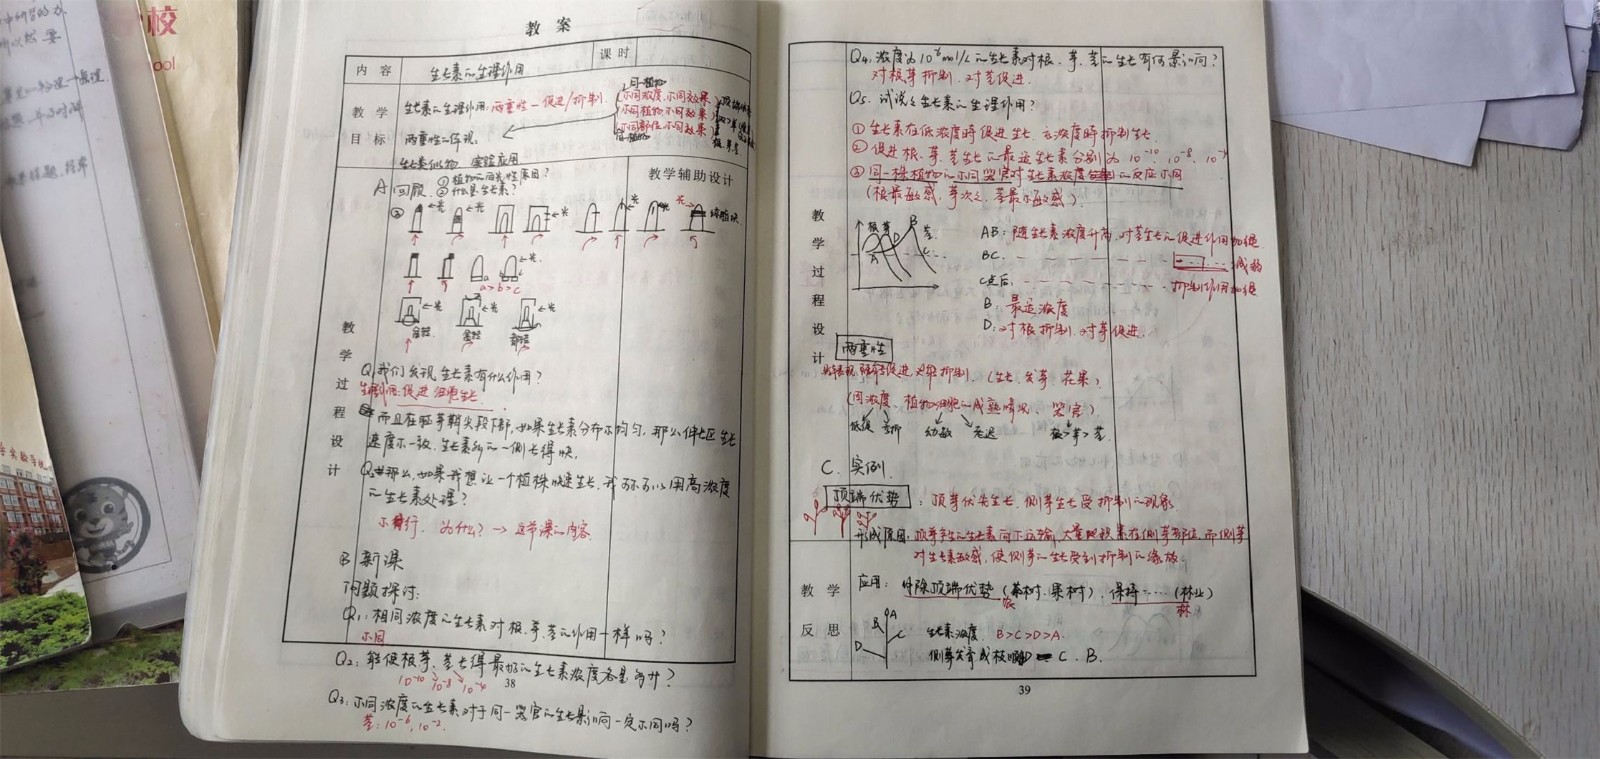 教案
内容
生长素的生理作用
课时
教学
目标
生长素的生理作用:两重性—促进/抑制
同一植物
不同浓度,不同效果
不同植物不同效果
不同部位不同效果
两重性的体现:
生长素类似物 实验应用
教学辅助设计
A 回顾 ①植物的向光性原因?
②什么是生长素?
③
光
光
光
光
光
a>b>c
光
光
光
光
教学过程设计
Q:我们发现生长素有什么作用?
生理作用:促进细胞生长.
而且在胚芽鞘尖段下部,如果生长素分布不均匀,那么伸长区生长
速度不一致,生长素多的一侧长得快.
那么,如果我想让一个植株快速生长,我可不可以用高浓度
的生长素处理?
不行. 为什么?→这节课的内容.
B 新课
问题探讨:
Q1:相同浓度的生长素对根、芽、茎的作用一样吗?
不同
Q2:能使根、芽、茎长得最好的生长素浓度各是多少?
10⁻¹⁰ 10⁻⁸ 10⁻⁴
38
Q3:不同浓度的生长素对于同一器官的生长影响一定不同吗?
茎:10⁻⁶,10⁻².
Q4:浓度为10⁻⁶mol/L的生长素对根、芽、茎的生长有何影响?
对根芽抑制.对茎促进.
Q5:试说出生长素的生理作用?
①生长素在低浓度时促进生长 高浓度时抑制生长.
②促进根、芽、茎生长的最适生长素分别为10⁻¹⁰、10⁻⁸、10⁻⁴
③同一株植物的不同器官对生长素浓度的反应不同
(根最敏感,芽次之,茎最不敏感).
教学过程设计
根 芽 D B 茎
A C
AB:随生长素浓度升高,对茎生长的促进作用加强.
BC. 减弱
C点后: 抑制作用加强
B:最适浓度
D:对根抑制.对芽促进.
两重性
(生长、发芽、花果)
(因浓度、植物细胞的成熟情况、器官)
低促 高抑 幼敏 老迟 根>芽>茎.
C. 实例.
顶端优势 :顶芽优先生长,侧芽生长受抑制的现象.
形成原因:顶芽产生的生长素向下运输,大量地积累在侧芽部位,而侧芽
对生长素敏感,使侧芽的生长受到抑制的缘故.
教学
反思
应用:解除顶端优势(茶树、果树),保持……(林业)
A
B
C
D
生长素浓度:B>C>D>A.
39